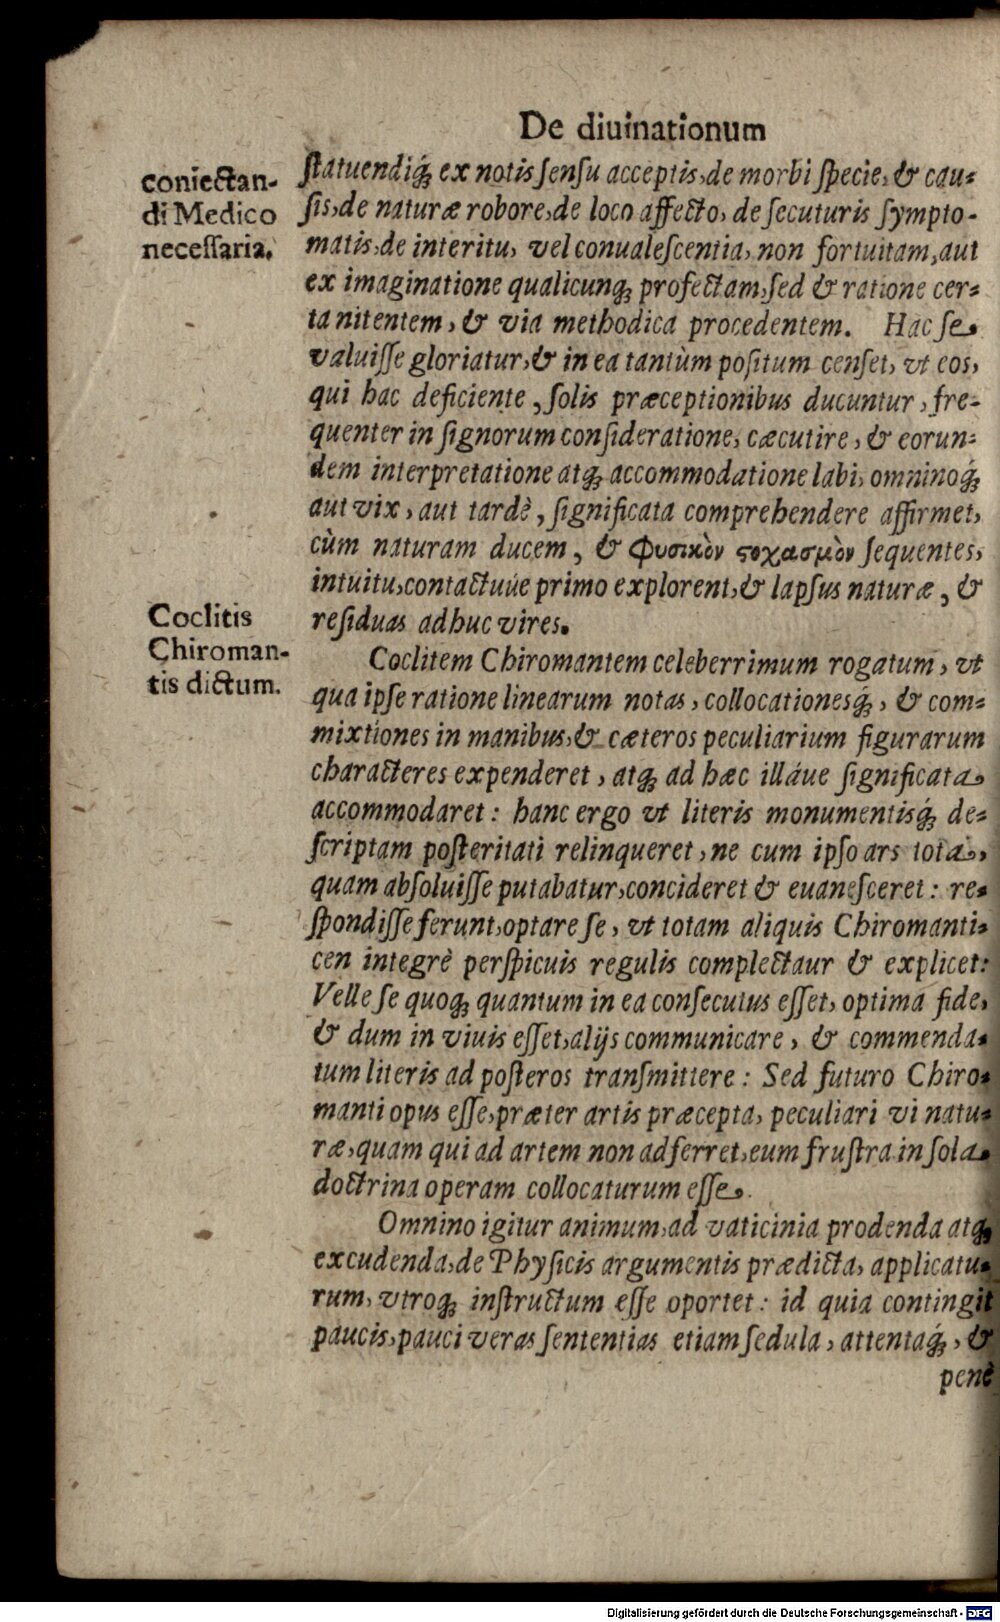 De diuinationum
coniectan-
di Medico
necessaria.
statuendiq́; ex notis sensu acceptis, de morbi specie, & cau-
sis, de naturæ robore, de loco affecto, de secuturis sympto-
matis, de interitu, vel conualescentia, non fortuitam, aut
ex imaginatione qualicunq; profectam, sed & ratione cer-
ta nitentem, & via methodica procedentem. Hac se
valuisse gloriatur, & in ea tantùm positum censet, vt eos,
qui hac deficiente, solis præceptionibus ducuntur, fre-
quenter in signorum consideratione, cæcutire, & eorun-
dem interpretatione atq; accommodatione labi, omninoq́;
aut vix, aut tardè, significata comprehendere affirmet,
cùm naturam ducem, & Φυσικὸν ϛοχασμὸν sequentes,
intuitu, contactuúe primo explorent, & lapsus naturæ, &
residuas adhuc vires.
Coclitis
Chiroman-
tis dictum.
Coclitem Chiromantem celeberrimum rogatum, vt
qua ipse ratione linearum notas, collocationesq́;, & com-
mixtiones in manibus, & cæteros peculiarium figurarum
characteres expenderet, atq; ad hæc illáue significata
accommodaret: hanc ergo vt literis monumentisq́; de-
scriptam posteritati relinqueret, ne cum ipso ars tota,
quam absoluisse putabatur, concideret & euanesceret: re-
spondisse ferunt, optare se, vt totam aliquis Chiromanti-
cen integrè perspicuis regulis complectaur & explicet:
Velle se quoq; quantum in ea consecutus esset, optima fide,
& dum in viuis esset, alijs communicare, & commenda-
tum literis ad posteros transmittere: Sed futuro Chiro-
manti opus esse, præter artis præcepta, peculiari vi natu-
ræ, quam qui ad artem non adferret, eum frustra in sola
doctrina operam collocaturum esse.
Omnino igitur animum, ad vaticinia prodenda atq;
excudenda, de Physicis argumentis prædicta, applicatu-
rum, vtroq; instructum esse oportet: id quia contingit
paucis, pauci veras sententias etiam sedula, attentaq́;, &
penè
Digitalisierung gefördert durch die Deutsche Forschungsgemeinschaft - DFG